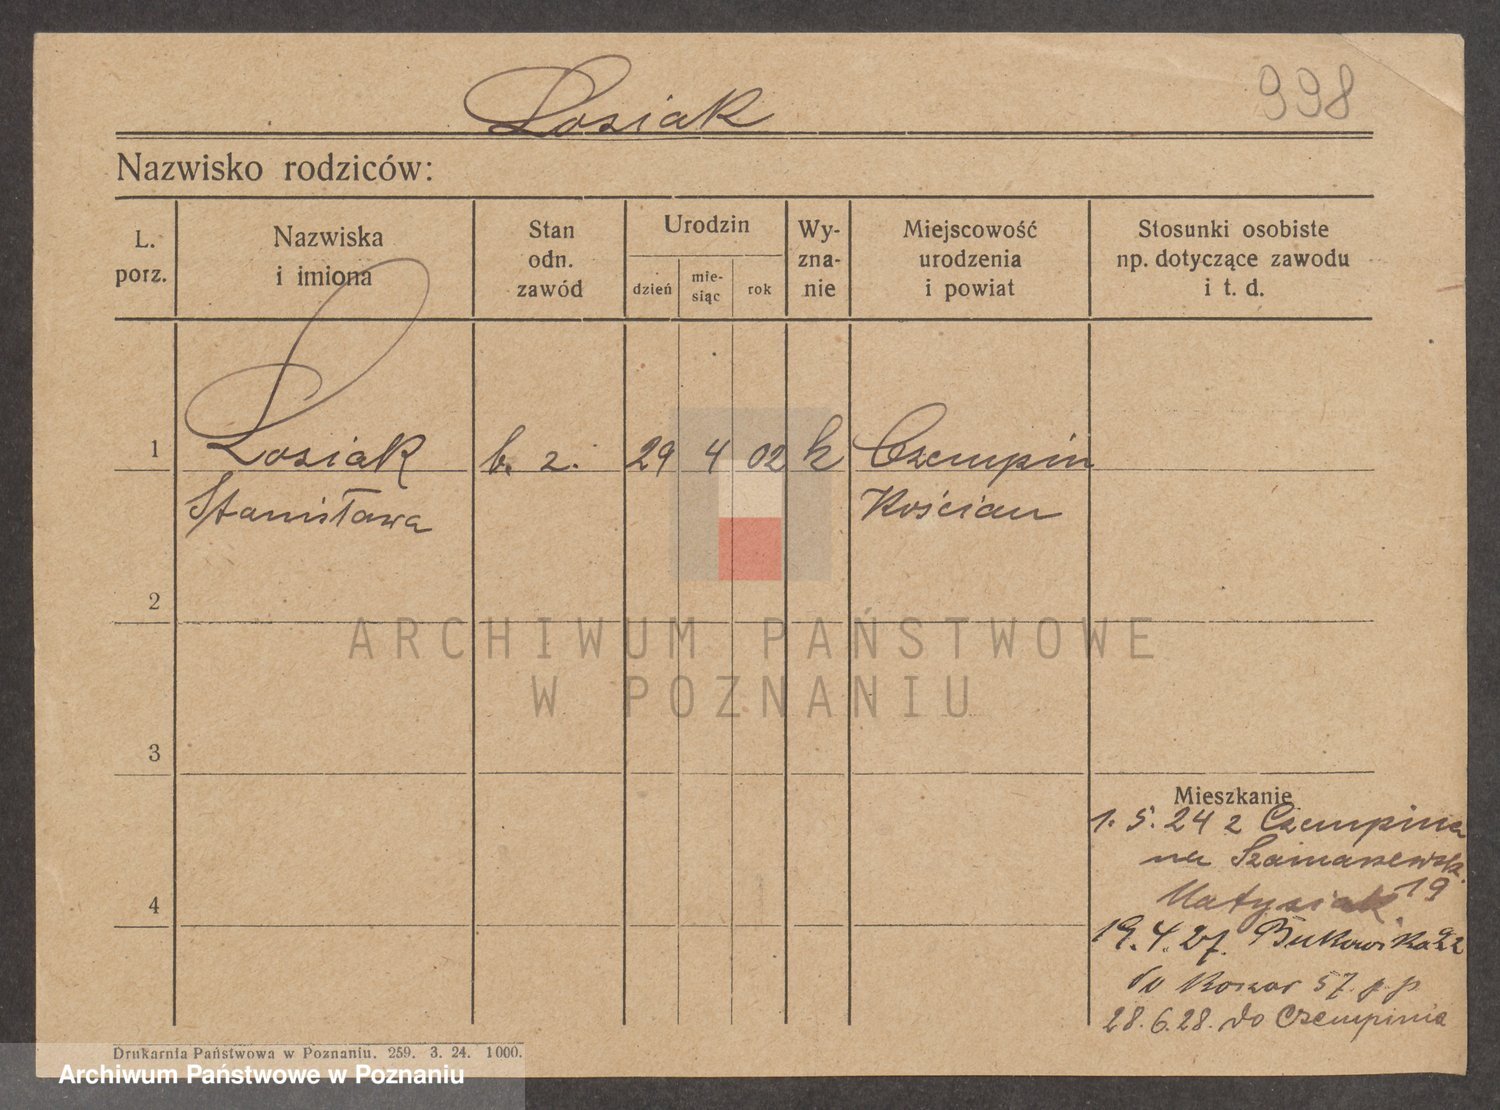 998
Losiak
Nazwisko rodziców:
L.
porz.
Nazwiska
i imiona
Stan
odn.
zawód
Urodzin
dzień
mie-
siąc
rok
Wy-
zna-
nie
Miejscowość
urodzenia
i powiat
Stosunki osobiste
np. dotyczące zawodu
i t. d.
1
Losiak
Stanisława
b. z.
29
4
02
k
Czempin
Kościan
2
3
4
ARCHIWUM PAŃSTWOWE
W POZNANIU
Mieszkanie
1. 5. 24 z Czempina
na Szamarzewsk.
19
Matysiak
19. 4. 27. Bukowska 22
do Koszar 57 p. p.
28. 6. 28. do Czempinia
Drukarnia Państwowa w Poznaniu. 259. 3. 24. 1000.
Archiwum Państwowe w Poznaniu